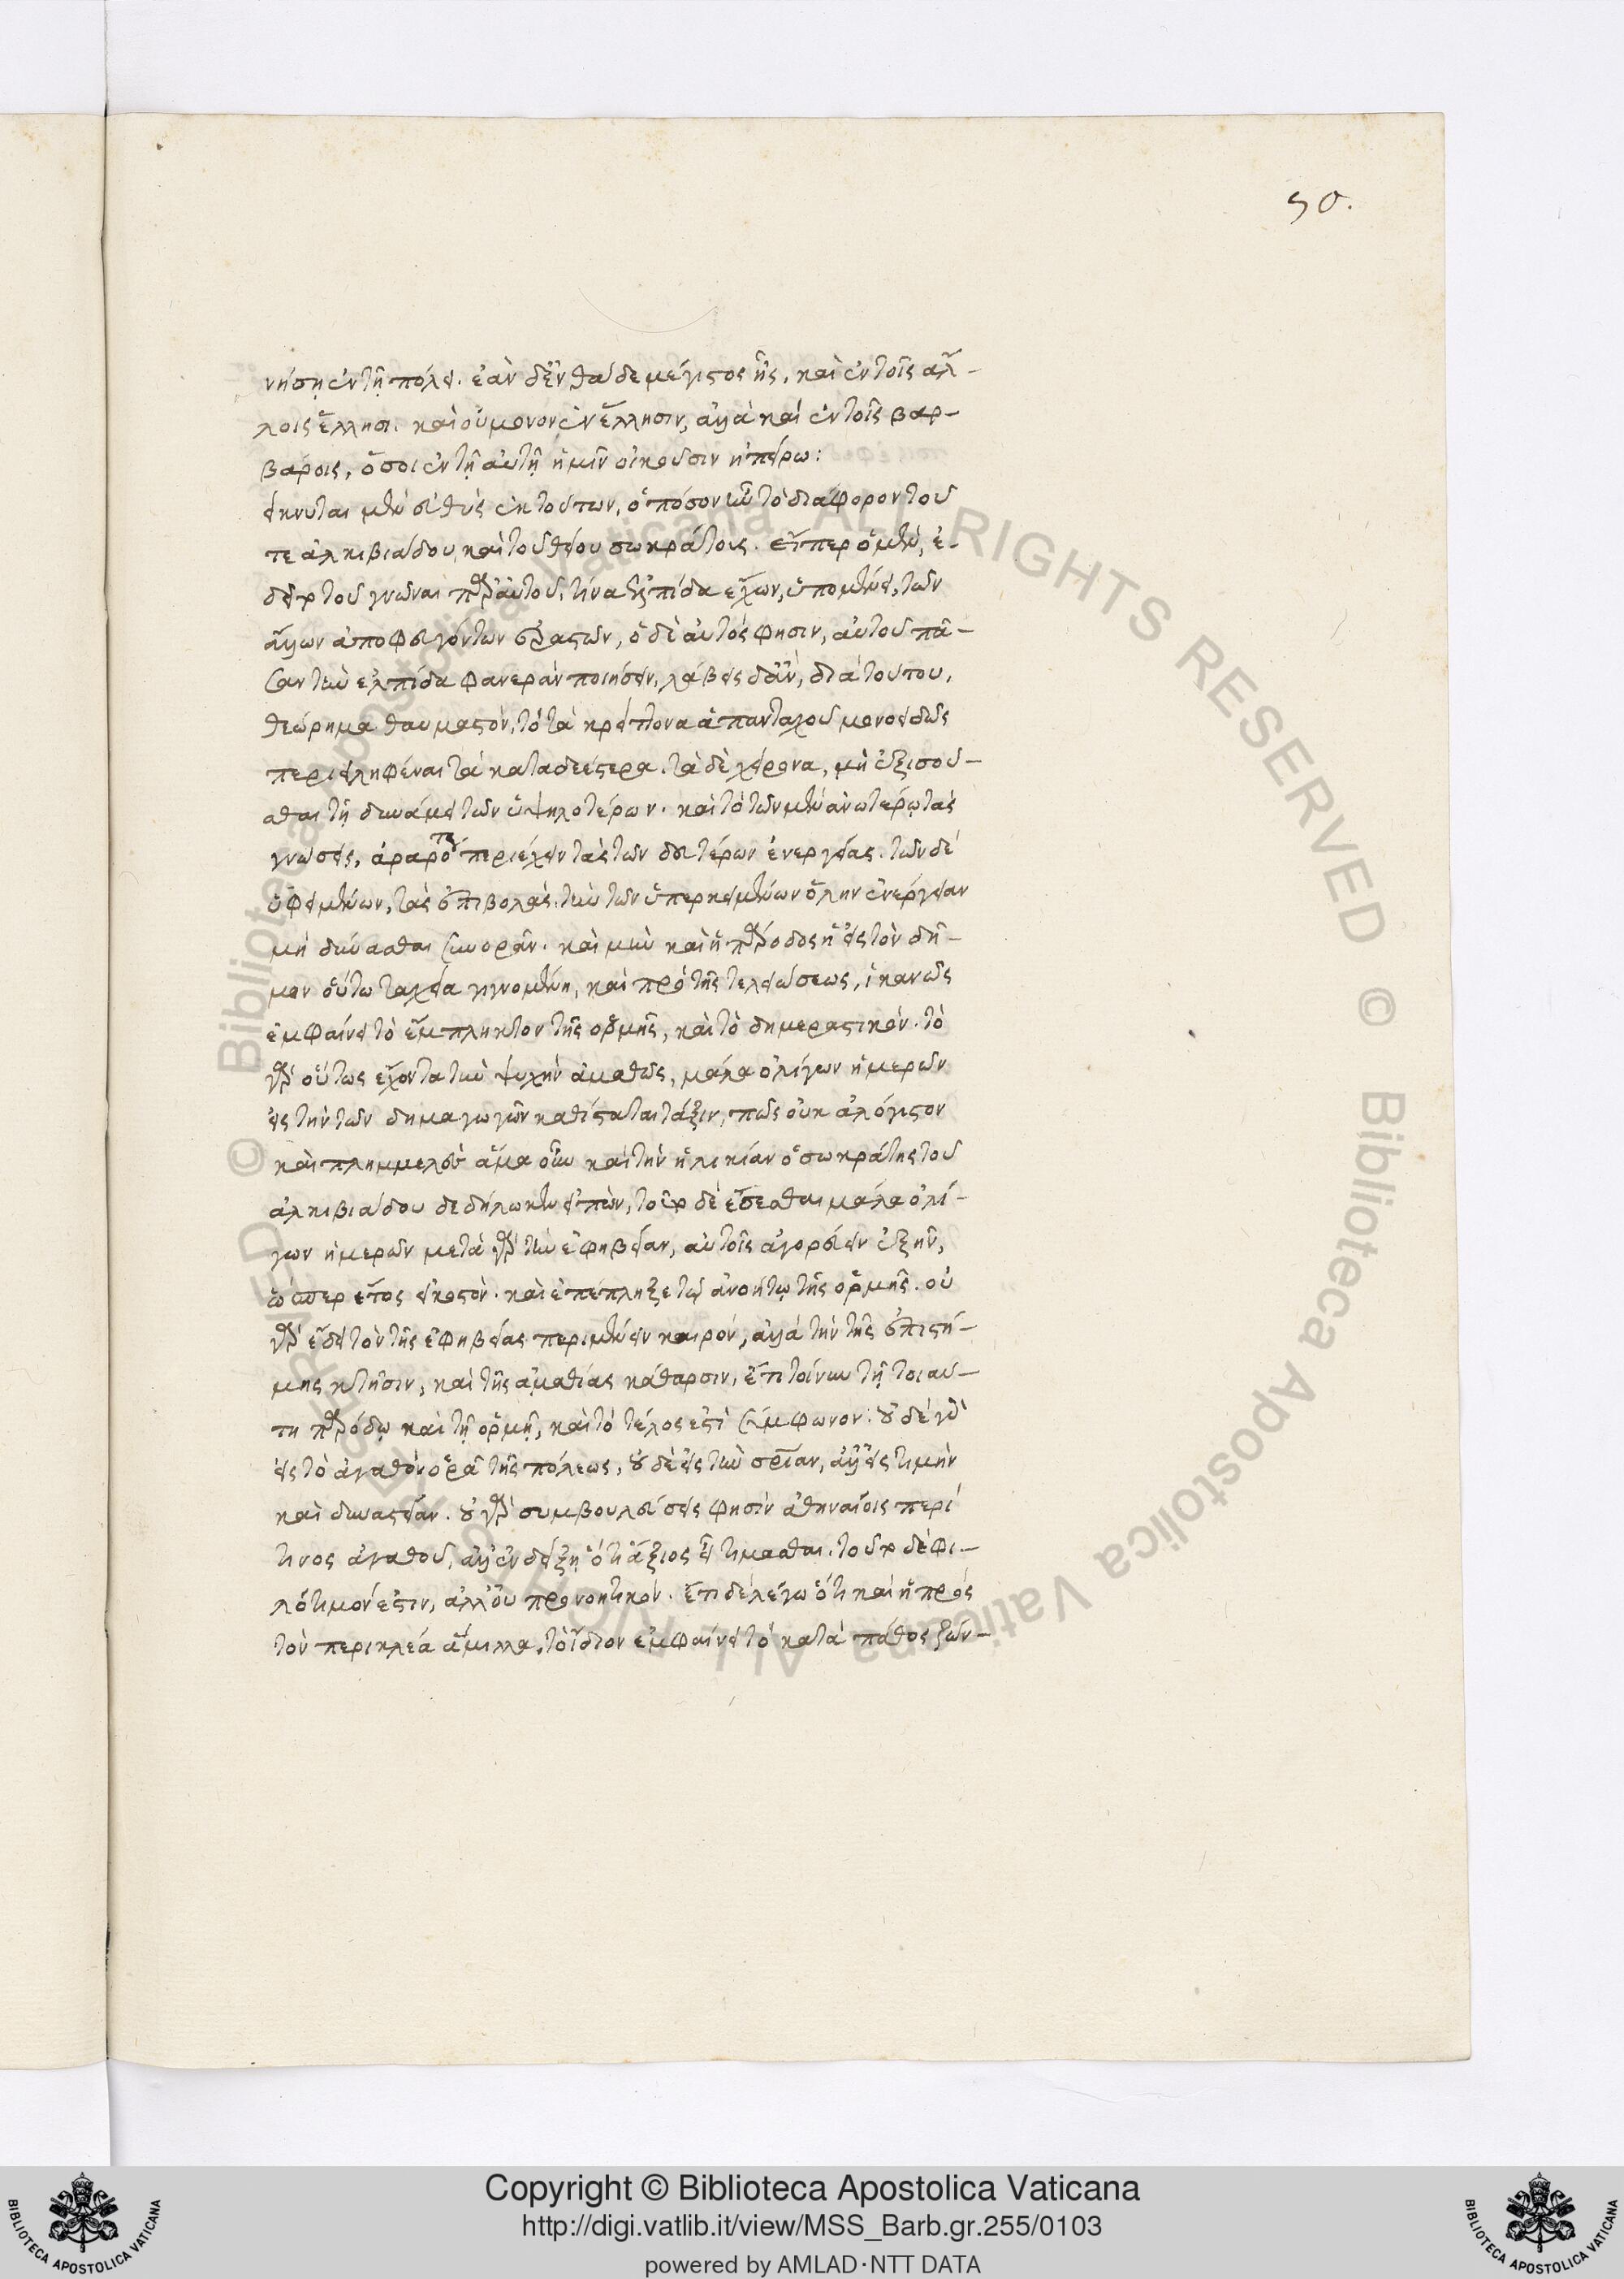 50.
νήσῃ ἐν τῇ πόλει. ἐὰν δ' ἐνθάδε μέγιστος ᾖς, καὶ ἐν τοῖς ἄλ-
λοις ἕλλησι. καὶ οὐ μόνον ἐν ἕλλησιν, ἀλλὰ καὶ ἐν τοῖς βαρ-
βάροις, ὅσοι ἐν τῇ αὐτῇ ἡμῖν οἰκοῦσιν ἠπείρω:
δείκνυται μὲν εὐθὺς ἐκ τούτων, ὁπόσον ἦν τὸ διάφορον τοῦ
τε ἀλκιβιάδου, καὶ τοῦ θείου σωκράτους. εἴπερ ὁ μὲν, ἐ-
δεῖτο τοῦ γνῶναι παρ' αὐτοῦ, τίνα ἐλπίδα ἔχων, ὑπομένει, τῶν
ἄλλων ἀποφευγόντων ἐραστῶν, ὁ δὲ αὐτός φησιν, αὐτοῦ πᾶ-
σαν τὴν ἐλπίδα φανερὰν ποιήσειν, λάβεις δ' ἂν, διὰ τούτου,
θεώρημα θαυμαστόν, τὸ τὰ κρείττονα ἁπανταχοῦ μονοειδῶς
περιειληφέναι τὰ καταδεέστερα. τὰ δὲ χείρονα, μὴ ἐξισοῦ-
σθαι τῇ δυνάμει τῶν ὑψηλοτέρων. καὶ τὸ τῶν μὲν ἀνωτέρω τὰς
γνώσεις, ἀραρότως περιέχειν τὰς τῶν δευτέρων ἐνεργείας. τῶν δὲ
ὑφειμένων, τὰς ἐπιβολὰς, τὴν τῶν ὑπερκειμένων ὅλην ἐνέργειαν
μὴ δύνασθαι συνορᾶν. καὶ μὴν καὶ ἡ πρόοδος ἡ εἰς τὸν δῆ-
μον οὕτω ταχεῖα γιγνομένη, καὶ πρὸ τῆς τελειώσεως, ἱκανῶς
ἐμφαίνει τὸ ἔμπληκτον τῆς ὁρμῆς, καὶ τὸ δημεραστικόν. τὸ
γὰρ οὕτως ἔχοντα τὴν ψυχὴν ἀμαθῶς, μάλα ὀλίγων ἡμερῶν
εἰς τὴν τῶν δημαγωγῶν καθίστασθαι τάξιν, πῶς οὐκ ἀλόγιστον
καὶ πλημμελές ἅμα οὖν καὶ τὴν ἡλικίαν ὁ σωκράτης τοῦ
ἀλκιβιάδου δεδήλωκεν εἰπὼν, τοῦτο δὲ ἔσεσθαι μάλα ὀλί-
γων ἡμερῶν μετὰ γὰρ τὴν ἐφηβείαν, αὐτοῖς ἀγορεύειν ἐξῆν,
ὥσπερ ἔτος εἰκοστόν. καὶ ἐπέπληξε τῷ ἀνοήτῳ τῆς ὁρμῆς. οὐ
γὰρ ἔδει τὸν τῆς ἐφηβείας περιμένειν καιρόν, ἀλλὰ τὴν τῆς ἐπιστή-
μης κτῆσιν, καὶ τῆς ἀμαθίας κάθαρσιν, ἔτι τοίνυν τῇ τοιαύ-
τῃ προόδῳ καὶ τῇ ὁρμῇ, καὶ τὸ τέλος ἐστὶ σύμφωνον. οὐδὲ γὰρ
εἰς τὸ ἀγαθὸν ὁρᾷ τῆς πόλεως, οὐδὲ εἰς τὴν σωτηρίαν, ἀλλ' εἰς τιμὴν
καὶ δυναστείαν. οὐ γὰρ συμβουλεύσεις φησὶν ἀθηναίοις περί
τινος ἀγαθοῦ, ἀλλ' ἐνδείξῃ ὅτι ἄξιος εἶ τιμᾶσθαι. τοῦτο δὲ φι-
λότιμόν ἐστιν, ἀλλ' οὐ προνοητικόν. ἔτι δὲ λέγω ὅτι καὶ ἡ πρὸς
τὸν περικλέα ἅμιλλα, τὸ ἴδιον ἐμφαίνει τὸ κατὰ πάθος ζών-
© Biblioteca Apostolica Vaticana ALL RIGHTS RESERVED
Copyright © Biblioteca Apostolica Vaticana
http://digi.vatlib.it/view/MSS_Barb.gr.255/0103
powered by AMLAD·NTT DATA
BIBLIOTECA APOSTOLICA VATICANA
BIBLIOTECA APOSTOLICA VATICANA